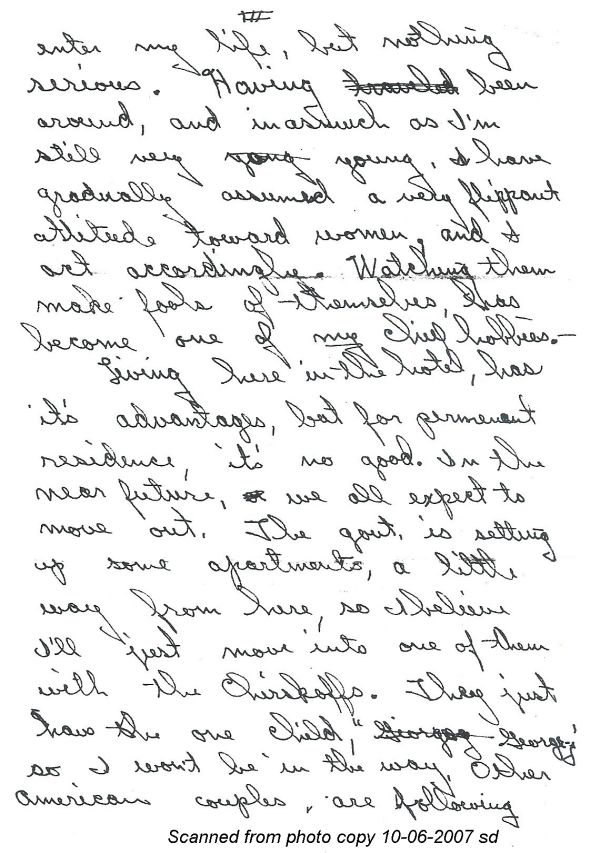 III
enter my life, but nothing
serious. Having traveled been
around, and inasmuch as I'm
still very yong young, I have
gradually assumed a very flippant
attitude toward women, and I
act accordinglie. Watching them
make fools of themselves, has
become one of my chief hobbies.—
Living here in the hotel, has
it's advantages, but for permenant
residence, it's no good. In the
near future, we all expect to
move out. The govt. is setting
up some apartments, a little
way from here, so I believe
I'll just move into one of them
with the Chirskoffs. They just
have the one child, "Georgey Georgej"
so I won't be in the way. Other
American couples, are following
Scanned from photo copy 10-06-2007 sd